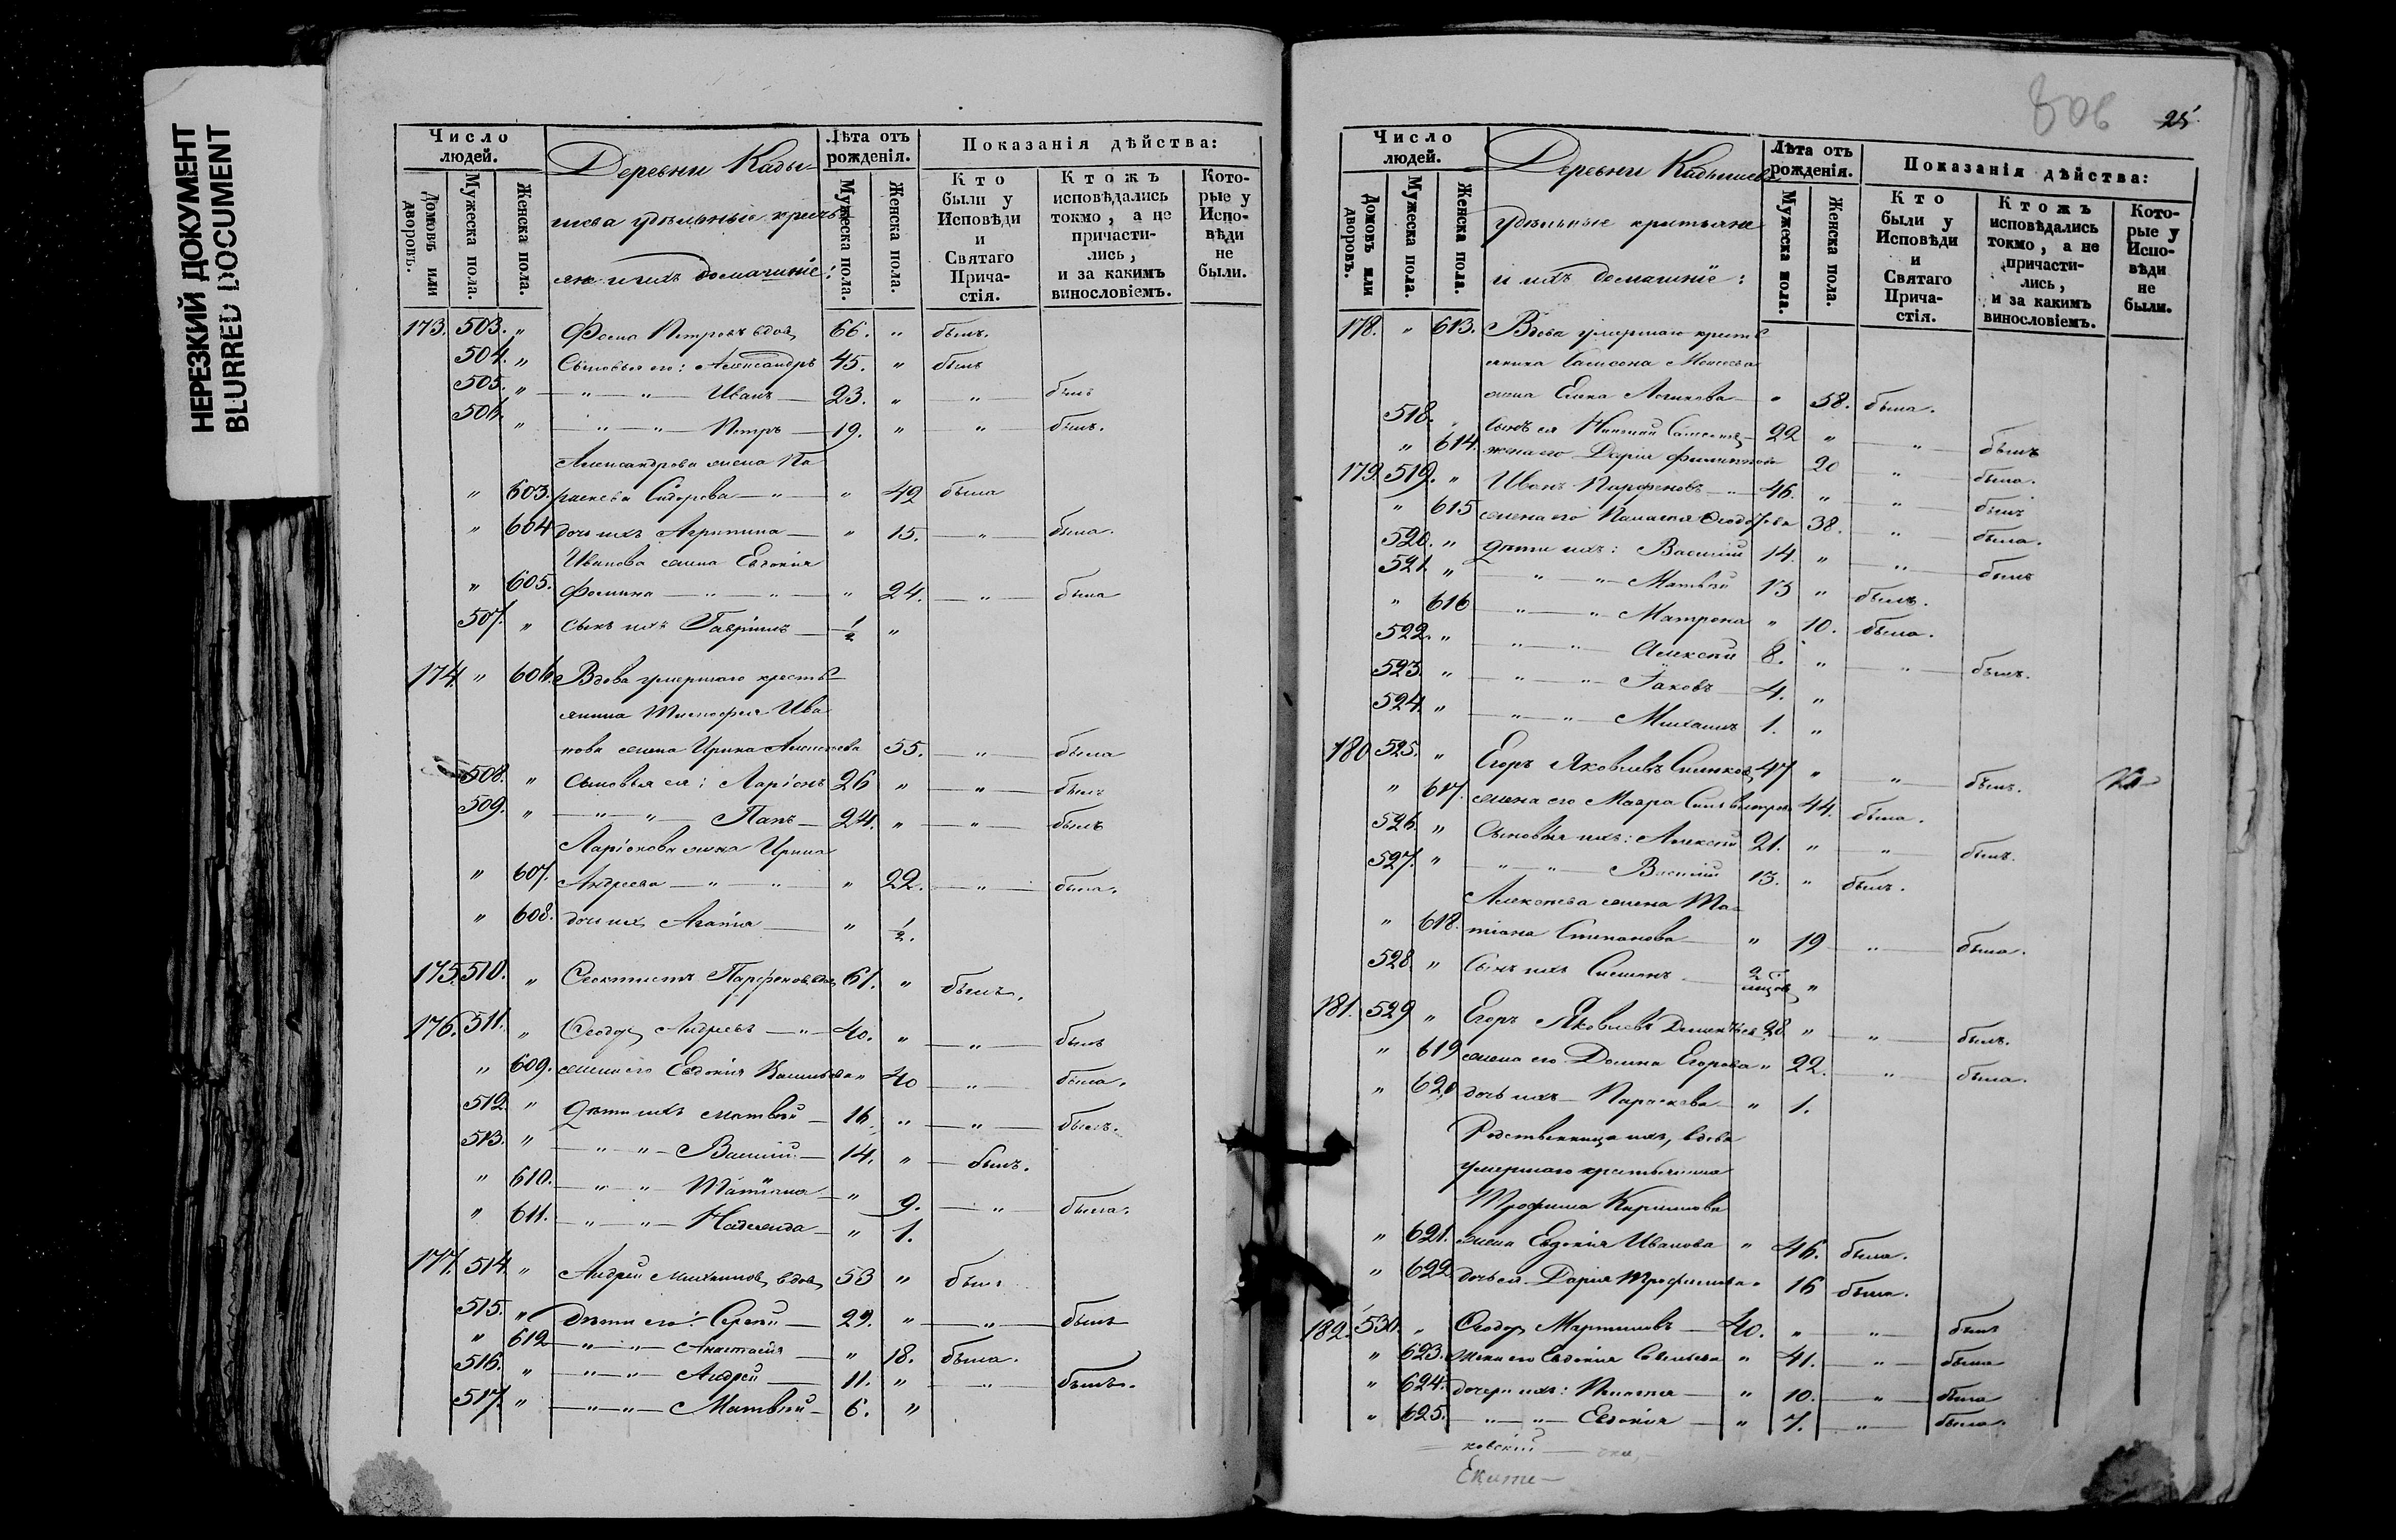 НЕРЕЗКИЙ ДОКУМЕНТ
BLURRED DOCUMENT
Число людей.
Домовъ или дворовъ.
Мужеска пола.
Женска пола.
Деревни Кады-
шева удѣльные кресть-
яне и ихъ домашніе:
Лѣта отъ рожденія.
Мужеска пола.
Женска пола.
Показанія дѣйства:
Кто были у Исповѣди и Святаго Прича-стія.
Ктожъ исповѣдались токмо, а не причасти-лись, и за какимъ винословіемъ.
Кото-рые у Испо-вѣди не были.
173. 503. " Фома Петровъ вдов 66. " былъ.
504. " Сыновья его: Александръ 45. " былъ
505. " — " — " — Иванъ — 23. " — " — былъ
506. " — " — " — Петръ — 19. " — " — былъ.
Александрова жена Па
" 603. раскева Сидорова — " — " 49 была
" 604 дочь ихъ Агрипина — " 15. — " — была.
Иванова жена Евдокія
" 605. Фомина — " — " — " 24. — " — была
507. " сынъ ихъ Гавріилъ — 1/2 "
174. " 606. Вдова умершаго кресть
янина Тимофея Ива
нова жена Ирина Алексѣева 55. — " — была
508. " Сыновья ея: Ларіонъ 26 " — " — былъ
509. " — " — " — Петръ — 24. " — " — былъ
Ларіонова жена Ирина
" 607. Андреева — " — " — " 22. — " — была.
" 608. дочь ихъ Агафія — " 1/2.
175. 510. " Феоктистъ Парфеновъ вдов 61. " былъ.
176. 511. " Ѳеодоръ Андреевъ — " — 40. " — " — былъ
" 609. жена его Евдокія Васильева " 40 — " — была.
512. " Дѣти ихъ Матвѣй — 16. " — " — былъ.
513. " — " — " — Василій — 14. " — былъ.
" 610. — " — " — Татіана — " 9. — " — была.
" 611. — " — " — Надежда — " 1.
177. 514. " Андрей Михайловъ вдов 53 " былъ
515. " Дѣти его: Сергѣй — 29. " — " — былъ
" 612 — " — " — Анастасія — " 18. была.
516. " — " — " — Андрей — 11. " — " — былъ.
517. " — " — " — Матвѣй — 6. "
806 25
Число людей.
Домовъ или дворовъ.
Мужеска пола.
Женска пола.
Деревни Кадышева
удѣльные крестьяне
и ихъ домашніе:
Лѣта отъ рожденія.
Мужеска пола.
Женска пола.
Показанія дѣйства:
Кто были у Исповѣди и Святаго Прича-стія.
Ктожъ исповѣдались токмо, а не причасти-лись, и за какимъ винословіемъ.
Кото-рые у Испо-вѣди не были.
178. " 613. Вдова умершаго кресть
янина Самсона Моисеева
жена Елена Логинова — " 58. была.
518. " сынъ ея Николай Самсонов — 22 " — " — былъ
" 614. жена его Дарія Филиппова 20 " — была.
179. 519. " Иванъ Парфеновъ — " — 46. " — " — былъ
" 615 жена его Пелагея Ѳеодорова 38. — " — была.
520. " Дѣти ихъ: Василій 14. " — " — былъ
521. " — " — " — Матвѣй 13 " былъ.
" 616 — " — " — Матрона " 10. была.
522. " — " — " — Алексѣй 8. " — " — былъ.
523. " — " — " — Іаковъ — 4. "
524. " — " — " — Михаилъ 1. "
180 525. " Егоръ Яковлевъ 47 " — " — былъ.
" 617. жена его Мавра Силивестрова 44. была.
526. " Сыновья ихъ: Алексѣй 21. " — " — былъ.
527. " — " — " — Василій 13. " былъ.
Алексѣева жена Та
" 618. тіана Степанова — " 19 — " — была.
528. " Сынъ ихъ Симеонъ — 2 мѣсяцов "
181. 529 " Егоръ Яковлевъ 28. " — " — былъ.
" 619 жена его Домна Егорова " 22. — " — была.
" 620 дочь ихъ — Параскева — " 1.
Родственница ихъ, вдова
умершаго крестьянина
Трофима Кирилова
" 621. жена Евдокія Иванова " 46. была.
" 622. дочь ея Дарія Трофимова " 16 была.
182. 530 " Ѳеодоръ Мартиновъ — 40. " — " — былъ
" 623. жена его Евдокія Савельева " 41. — " — была
" 624. дочери ихъ: Пелагея — " 10. — " — была
" 625. — " — " — Евдокія — " 7. — " — была.
ковскій
Екате—